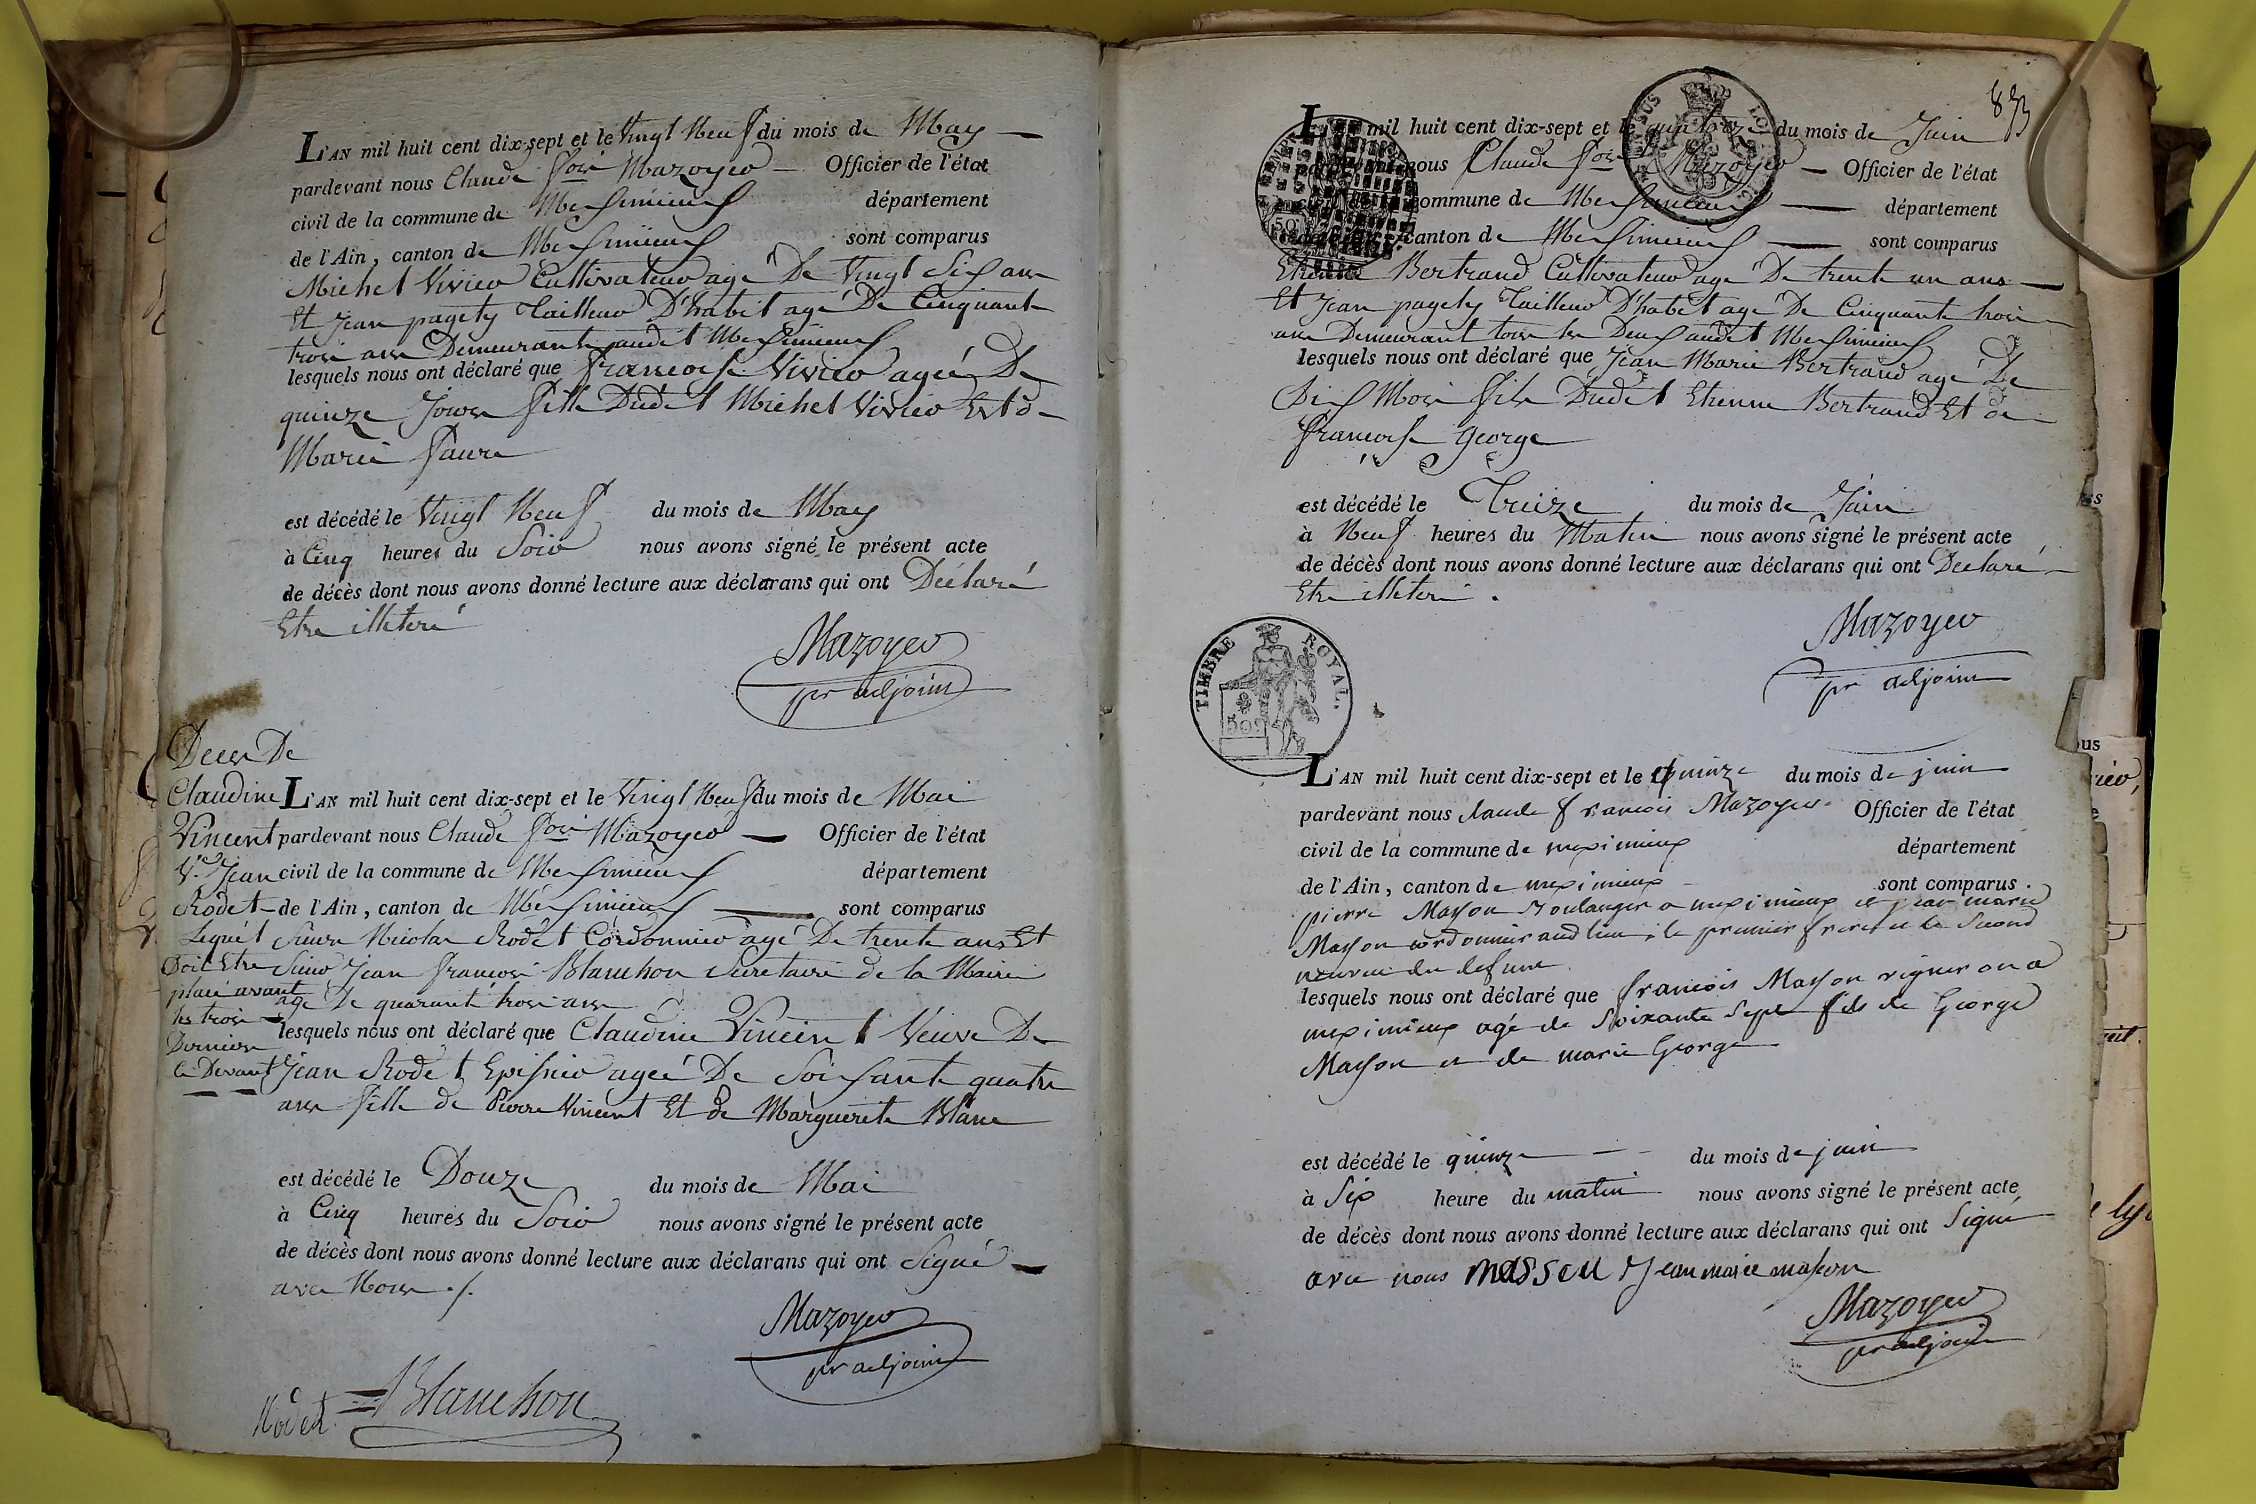 L'AN mil huit cent dix-sept et le Vingt Neuf du mois de May
pardevant nous Claude fois Mazoyer Officier de l'état
civil de la commune de Meximieux département
de l'Ain, canton de Meximieux sont comparus
Michel Vivier Cultivateur agé De Vingt Six ans
Et Jean pagety Tailleur D'habit agé De Cinquante
trois ans Demeurants audit Meximieux
lesquels nous ont déclaré que françoise Vivier agée De
quinze Jours fille Dudit Michel Vivier Et de
Marie faure
est décédé le Vingt Neuf du mois de May
à Cinq heures du Soir nous avons signé le présent acte
de décès dont nous avons donné lecture aux déclarans qui ont Déclaré
Etre illeteré
Mazoyer
pr adjoint
Deces De
Claudine
Vincent
Ve Jean
Rodet
Lequel
Doit Etre
placé avant
les trois
Dernier
Ci Devant
L'AN mil huit cent dix-sept et le Vingt Neuf du mois de Mai
pardevant nous Claude fois Mazoyer Officier de l'état
civil de la commune de Meximieux département
de l'Ain, canton de Meximieux sont comparus
Sieur Nicolas Rodet Cordonnier agé De trente ans Et
Sieur Jean françois Blanchon Secretaire de la Mairie
agé De quarante trois ans
lesquels nous ont déclaré que Claudine Vincent Veuve De
Jean Rodet Episier agée De Soixante quatre
ans fille de Pierre Vincent Et de Marguerite Blanc
est décédé le Douze du mois de Mai
à Cinq heures du Soir nous avons signé le présent acte
de décès dont nous avons donné lecture aux déclarans qui ont Signé
avec Nous ./.
Mazoyer
pr adjoint
Rodet Blanchon
833
L'AN mil huit cent dix-sept et le quatorze du mois de Juin
nous Claude fois Mazoyer Officier de l'état
commune de Meximieux département
canton de Meximieux sont comparus
Etienne Bertrand Cultivateur agé De trente un ans
Et Jean pagety Tailleur D'habit agé De Cinquante trois
ans Demeurant tous les Deux audit Meximieux
lesquels nous ont déclaré que Jean Marie Bertrand agé De
Dix Mois fils Dudit Etienne Bertrand Et de
françoise George
est décédé le Treize du mois de Juin
à Neuf heures du Matin nous avons signé le présent acte
de décès dont nous avons donné lecture aux déclarans qui ont Déclaré
Etre illeteré .
Mazoyer
pr adjoint
TIMBRE ROYAL.
L'AN mil huit cent dix-sept et le quinze du mois de juin
pardevant nous claude françois Mazoyer Officier de l'état
civil de la commune de meximieux département
de l'Ain, canton de meximieux sont comparus
pierre Masson Boulanger a meximieux et jean marie
Masson cordonnier audit lieu, le premier frere et le Second
neuveu du defunt
lesquels nous ont déclaré que françois Masson vigneron a
meximieux agé de Soixante Sept fils de George
Masson et de marie George
est décédé le quinze du mois de juin
à Six heure du matin nous avons signé le présent acte
de décès dont nous avons donné lecture aux déclarans qui ont Signé
avec nous massou Jean marie masson
Mazoyer
pr adjoint